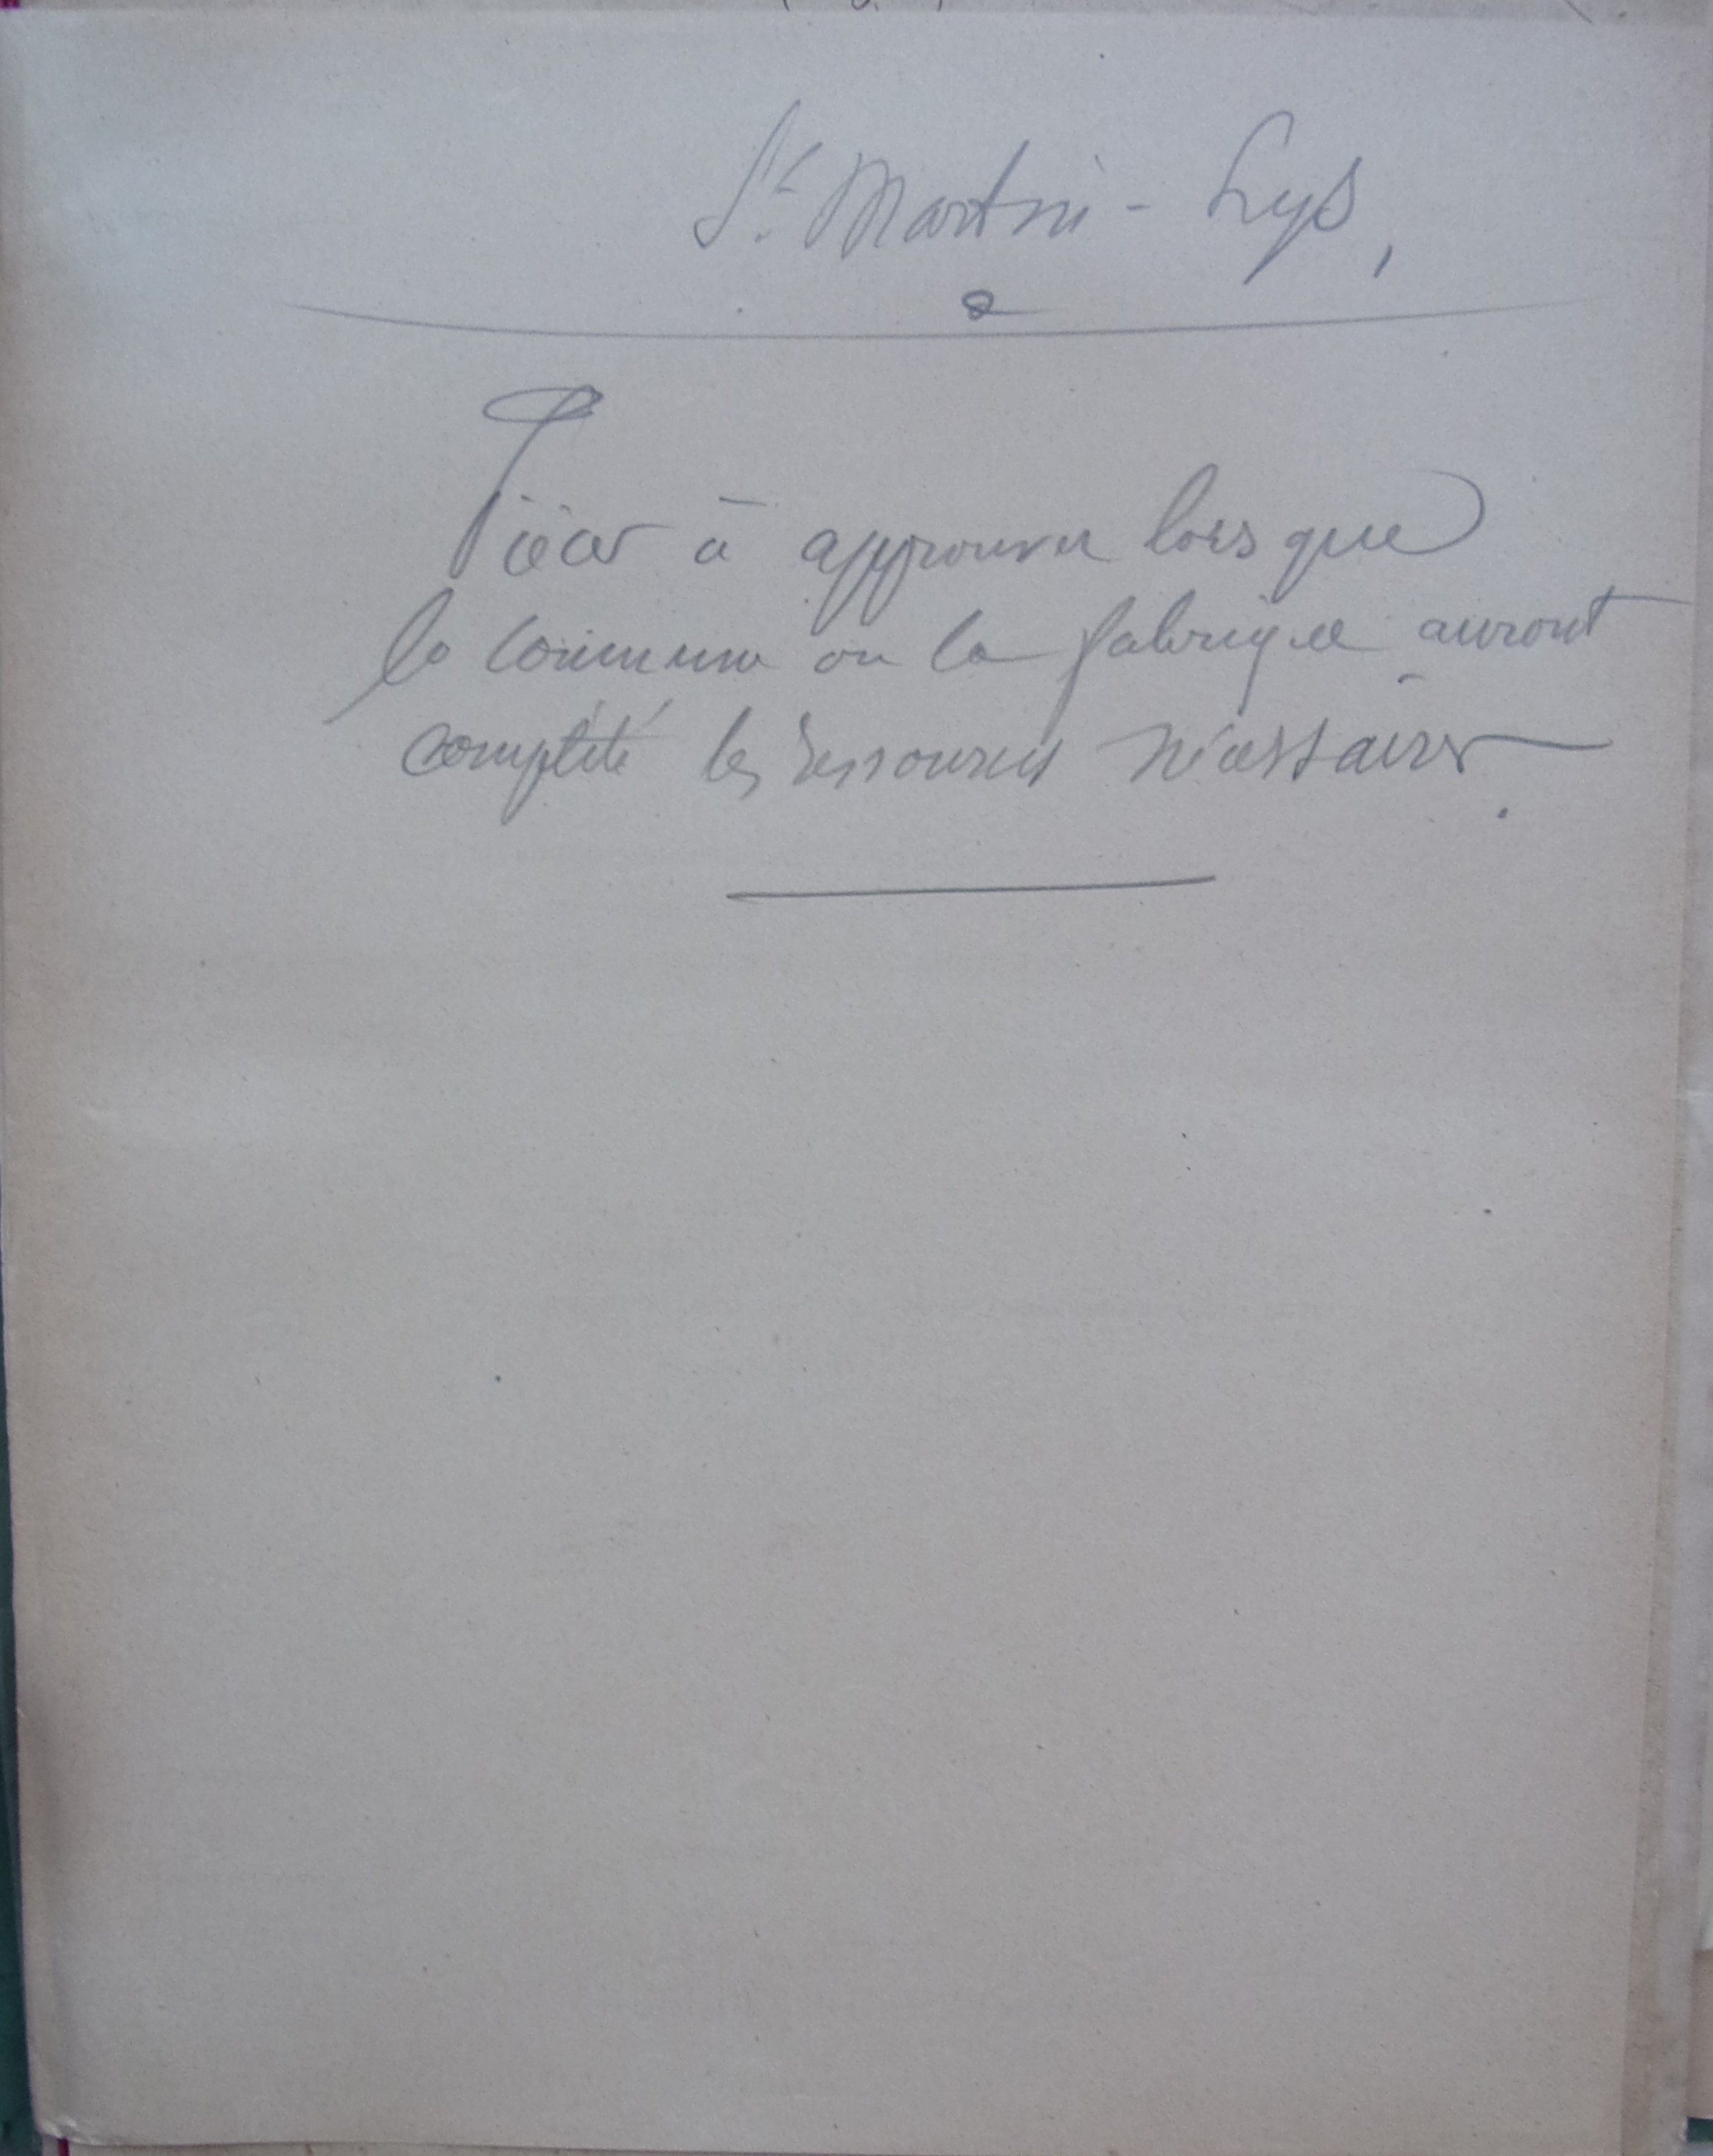 St. Martin-Lys,
Pièces à approuver lorsque
la commune ou la fabrique auront
complété les ressources nécessaires.